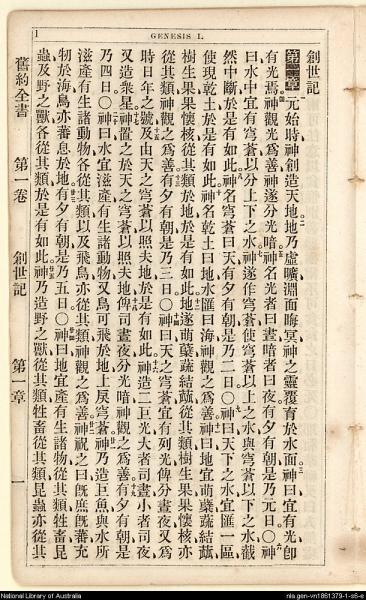 1
GENESIS I.
創世記
第一章 元始時神創造天地地乃虛曠淵面晦冥神之靈覆育於水面神曰宜有光卽
有光焉神觀光爲善神遂分光暗神名光者曰晝暗者曰夜有夕有朝是乃元日○神
曰水中宜有穹蒼以分上下之水神遂作穹蒼使穹蒼以上之水與穹蒼以下之水截
然中斷於是有如此神名穹蒼曰天有夕有朝是乃二日○神曰天下之水宜匯一區
使現乾土於是有如此神名乾土曰地水匯曰海神觀之爲善神曰地宜萌蘖蔬結蓏
樹生果果懷核從其類於地於是有如此地遂萌蘖蔬結蓏從其類樹生果果懷核亦
從其類神觀之爲善有夕有朝是乃三日○神曰天之穹蒼宜有列光俾分晝夜又爲
時日年之號及由天之穹蒼以照夫地於是有如此神造二巨光大者司晝小者司夜
又造衆星神置之於天之穹蒼以照夫地俾司晝夜分光暗神觀之爲善有夕有朝是
乃四日○神曰水宜滋產有生諸動物又鳥可飛於地上戾穹蒼神乃造巨魚與水所
滋產有生諸動物各從其類以及飛鳥亦從其類神觀之爲善神祝之曰旣庶旣蕃充
牣於海鳥亦蕃息於地有夕有朝是乃五日○神曰地宜產有生諸物從其類牲畜昆
蟲及野之獸各從其類於是有如此神乃造野之獸從其類牲畜從其類昆蟲亦從其
舊約全書 第一卷 創世記 第一章 一
National Library of Australia
nla.gen-vn1861379-1-s6-e